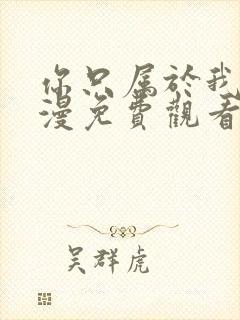 你只属於我
漫免費觀看
吴群虎